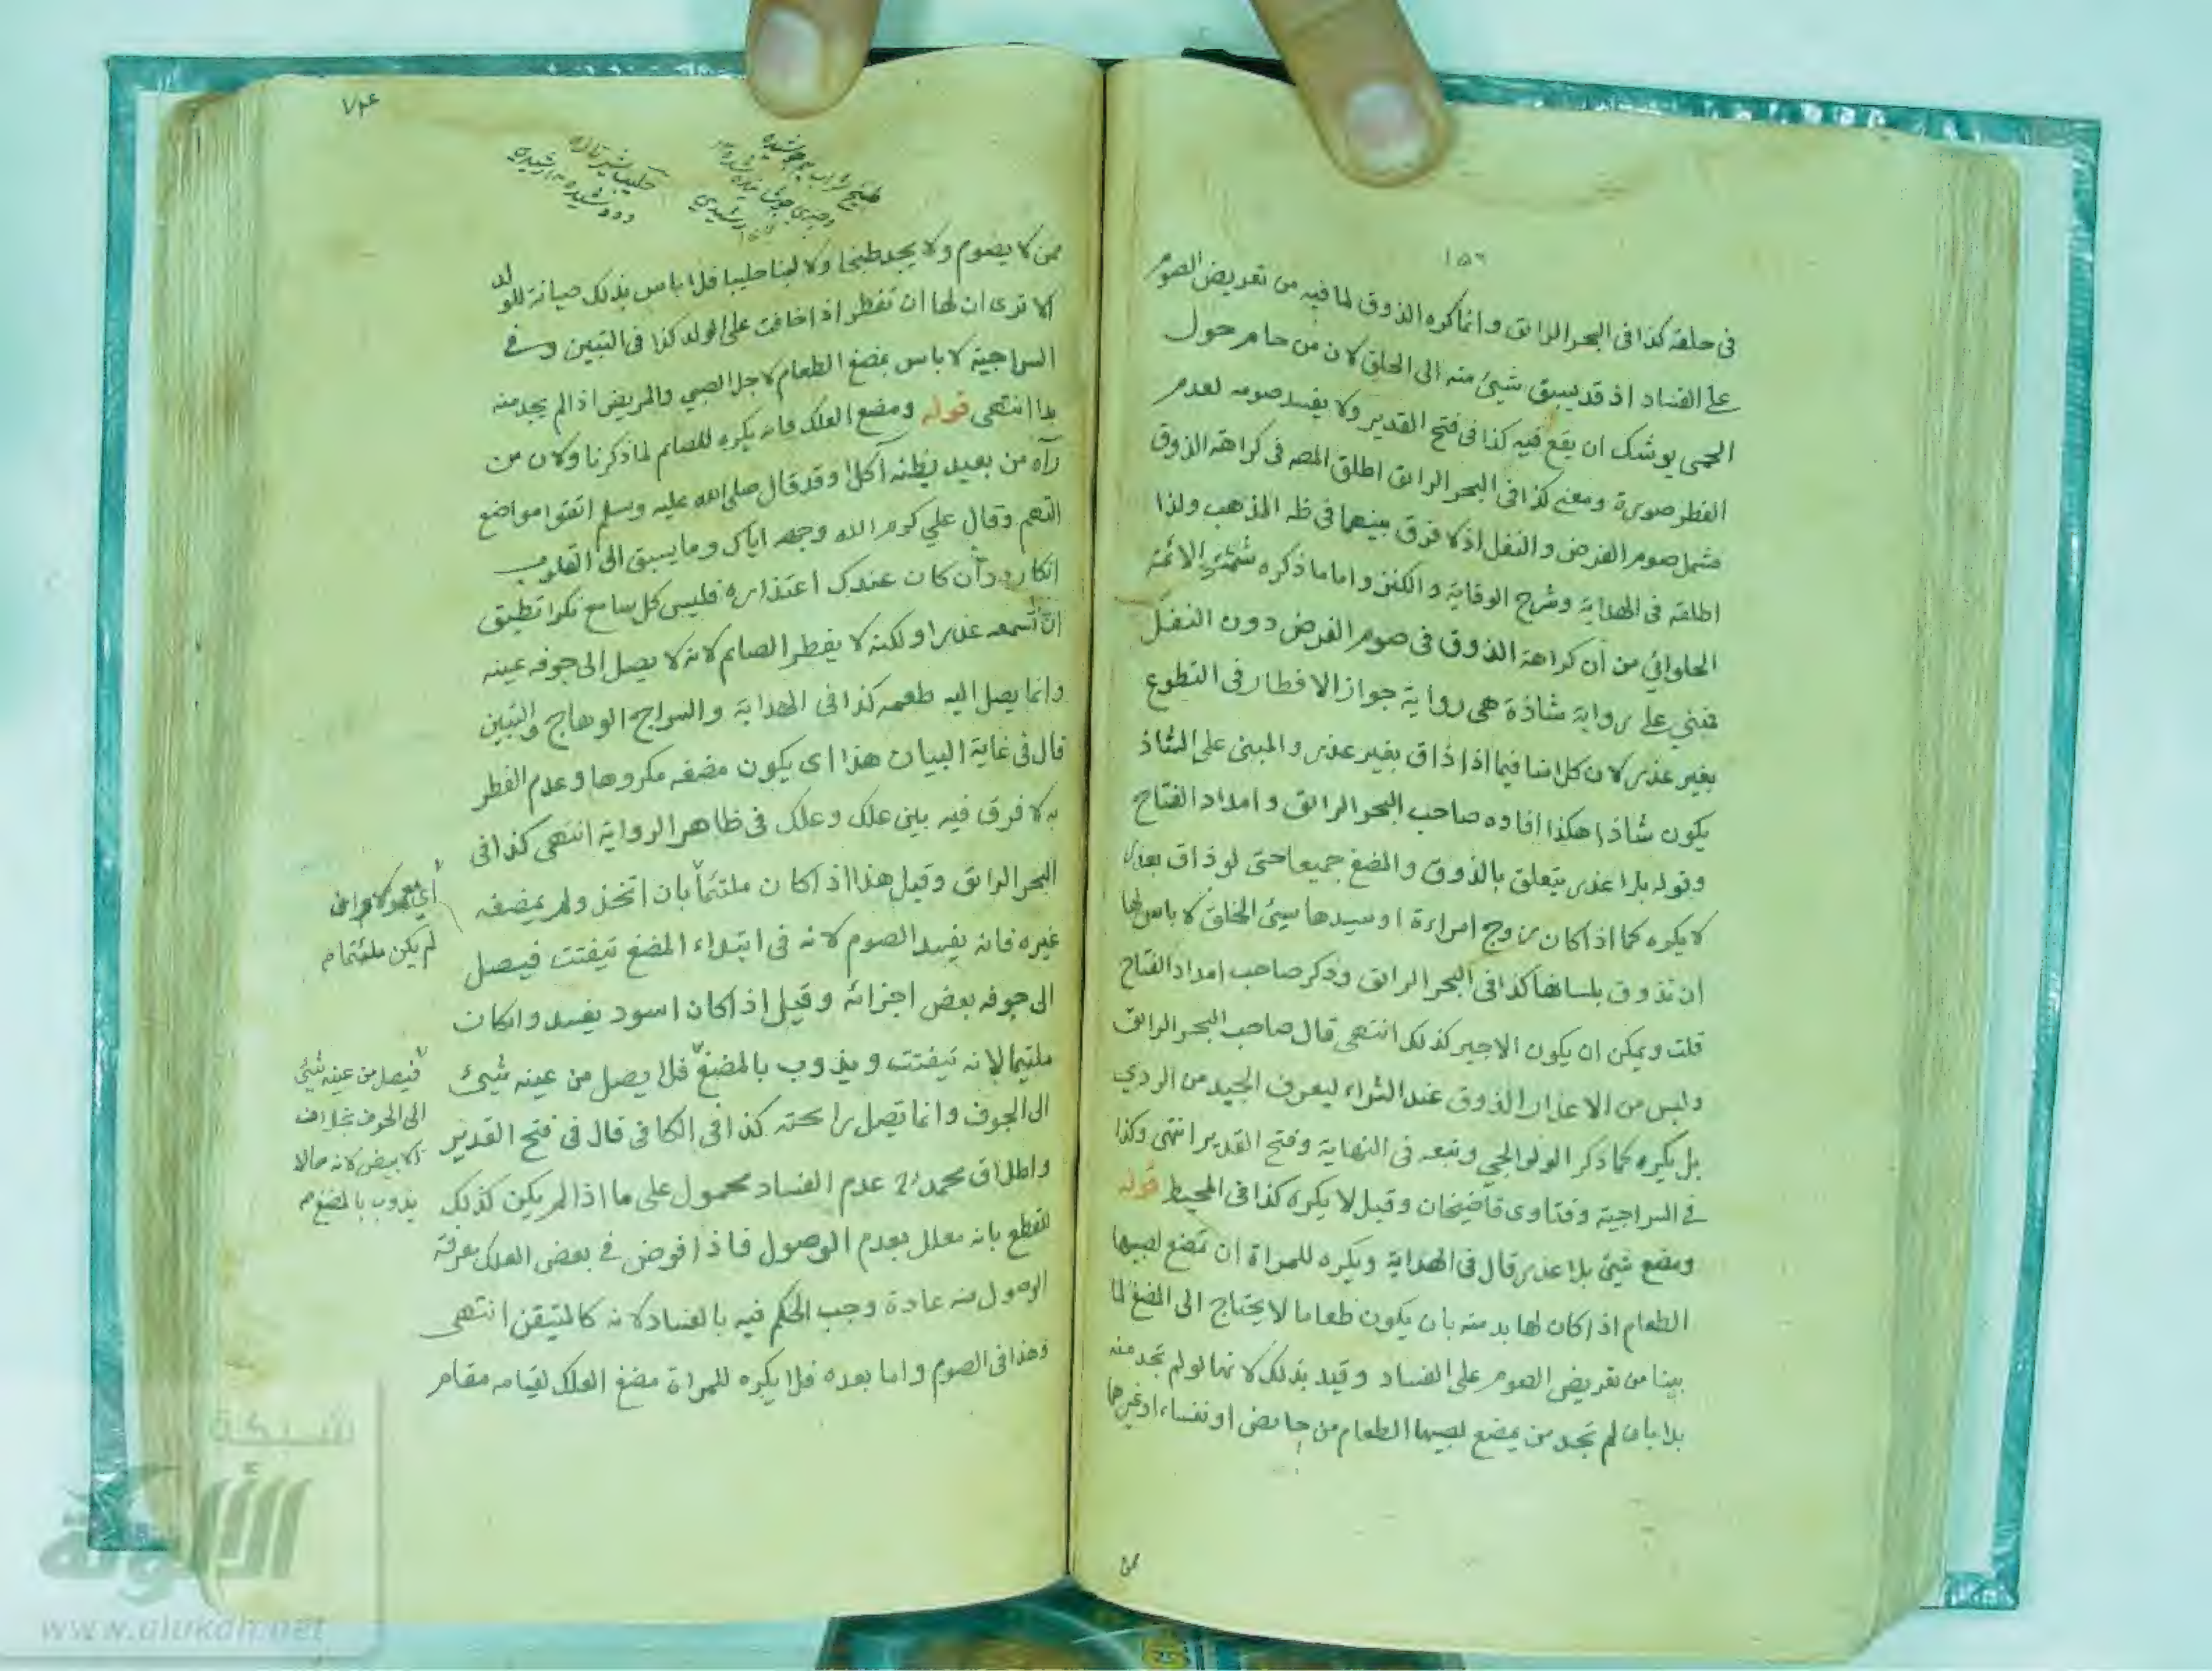 ١٥٦
في حلقه كذا في البحر الرائق وانما كره الذوق لما فيه من تعريض الصوم
على الفساد اذ قد يسبق شيئ منه الى الحلق لان من حام حول
الحمى يوشك ان يقع فيه كذا في فتح القدير ولا يفسد صومه لعدم
الفطر صورة ومعنى كذا في البحر الرائق اطلق المصه في كراهة الذوق
فشمل صوم الفرض والنفل اذ لا فرق بينهما في ظه المذهب ولذا
اطلقه في الهداية وشرح الوقاية والكنز واما ما ذكره شمس الائمة
الحلوائي من ان كراهة الذوق في صوم الفرض دون النفل
فمبني على رواية شاذة هى رواية جواز الافطار في التطوع
بغير عذر لان كلامنا فيما اذا ذاق بغير عذر والمبني على الشاذ
يكون شاذا هكذا افاده صاحب البحر الرائق وامداد الفتاح
وقوله بلا عذر يتعلق بالذوق والمضغ جميعا حتى لو ذاق بعذر
لا يكره كما اذا كان زوج امراءة او سيدها سيئ الخلق لا باس لها
ان تذوق بلسانها كذا في البحر الرائق وذكر صاحب امداد الفتاح
قلت ويمكن ان يكون الاجير كذلك انتهى قال صاحب البحر الرائق
وليس من الاعذار الذوق عند الشراء ليعرف الجيد من الردي
بل يكره كما ذكر الولوالجي وتبعه في النهاية وفتح القدير انتهى وكذا
في السراجية وفتاوى قاضيخان وقيل لا يكره كذا في المحيط قوله
ومضغ شيئ بلا عذر قال في الهداية ويكره للمراة ان تمضغ لصبيها
الطعام اذا كان لها بد منه بان يكون طعاما لا يحتاج الى المضغ لما
بينا من تعريض الصوم على الفساد وقيد بذلك لانها لو لم تجد منه
بدا بان لم تجد من يمضغ لصبيها الطعام من حائض او نفساء او غيرهما
ممن لا يصوم ولا يجد طبخا ولا لبنا حليبا فلا باس بذلك صيانة للولد
الا ترى ان لها ان تفطر اذا خافت على الولد كذا في التبين وفي
السراجية لا باس بمضغ الطعام لاجل الصبي والمريض اذا لم يجد منه
بدا انتهى قوله ومضغ العلك فانه يكره للصائم لما ذكرنا ولان من
رآه من بعيد يظنه آكلا وقد قال صلى الله عليه وسلم اتقوا مواضع
التهم وقال علي كرم الله وجهه اياك وما يسبق الى القلوب
انكاره وان كان عندك اعتذاره فليس كل سامع نكرا تطيق
ان تسمعه عذرا ولكنه لا يفطر الصائم لانه لا يصل الى جوفه عينه
وانما يصل اليه طعمه كذا في الهداية والسراج الوهاج والتبين
قال في غاية البيان هذا اى يكون مضغه مكروها وعدم الفطر
به لا فرق فيه بين علك وعلك في ظاهر الرواية انتهى كذا في
البحر الرائق وقيل هذا اذا كان ملتئما بان اتخذ ولم يمضغه
غيره فانه يفسد الصوم لانه في ابتداء المضغ تيفتت فيصل
الى جوفه بعض اجزائه وقيل اذا كان اسود يفسد وان كان
ملتيما لانه تيفتت ويذوب بالمضغ فلا يصل من عينه شيئ
الى الجوف وانما تصل رائحته كذا في الكافي قال في فتح القدير
واطلاق محمد عدم الفساد محمول على ما اذا لم يكن كذلك
للقطع بانه معلل بعدم الوصول فاذا فرض في بعض العلك معرفة
الوصول منه عادة وجب الحكم فيه بالفساد لانه كالمتيقن انتهى
وهذا في الصوم واما بعده فلا يكره للمراة مضغ العلك لقيامه مقام
لم يكن ملتئما
فيصل من عينه شيئ
الى الجوف بخلاف
الابيض لانه
يذوب بالمضغ
شبكة
الألوكة
www.alukah.net